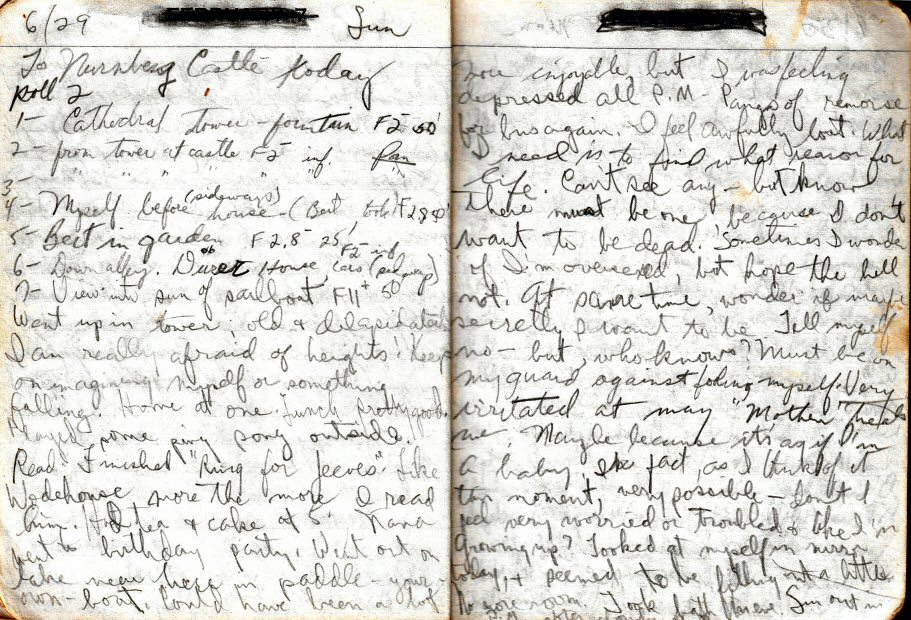 6/29 Sun
To Nurnberg Castle today
Roll 2
1- Cathedral tower - fountain F2 50'
2- from tower at castle F2 inf.
3- " " " " " "
4- Myself before (sideways) house - (Bert took) F2.8
5- Bert in garden F 2.8 25'
6- Down alley. Dürer House, F2 inf
7- View into sun of sailboat F11 50'
Went up in tower, old & dilapidated
I am really afraid of heights! Keep
on imagining myself or something
falling. Home at one. Lunch pretty good.
Played some ping pong outside.
Read. Finished "Ring for Jeeves". Like
Wodehouse more the more I read
him. Had tea & cake at 5. Nana
went to birthday party. Went out on
lake near here in paddle-your-
own-boat. Could have been a lot
more enjoyable, but I was feeling
depressed all P.M. Pangs of remorse
for again. I feel awfully lost. What
I need is to find what reason for
life. Can't see any - but know
there must be one, because I don't
want to be dead. Sometimes I wonder
if I'm oversexed, but hope the hell
not. At same time, wonder if maybe
secretly I want to be. Tell myself
no - but, who knows? Must be on
my guard against foling myself. Very
irritated at may "Mother" heals
me. Maybe because it's as if I'm
a baby. In fact, as I think of it
this moment, very possible - don't I
feel very worried or troubled & like I'm
growing up? Looked at myself in mirror
today, & seemed to be filling out a little
to more room. Took bath here. Sun out in